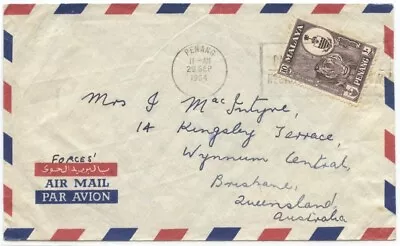 PENANG
11-AM
29 SEP
1964
MALAYA
PENANG
10
Mrs I MacIntyre,
1A Kingsley Terrace,
Wynnum Central,
Brisbane,
Queensland,
Australia
FORCES'
AIR MAIL
PAR AVION